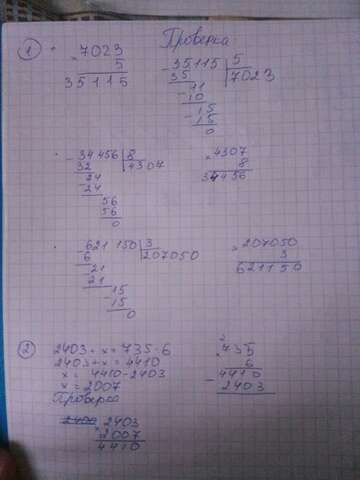 Проверка
1
× 7023
5
35115
- 35115 | 5
35 | 7023
11
- 10
15
- 15
0
- 34456 | 8
32 | 4307
24
- 24
56
56
0
× 4307
8
34456
- 621150 | 3
6 | 207050
21
21
15
- 15
0
× 207050
3
621150
2
2403 + x = 735 · 6
2403 + x = 4410
x = 4410 - 2403
x = 2007
Проверка
2403
2007
4410
× 735
6
4410
- 2403